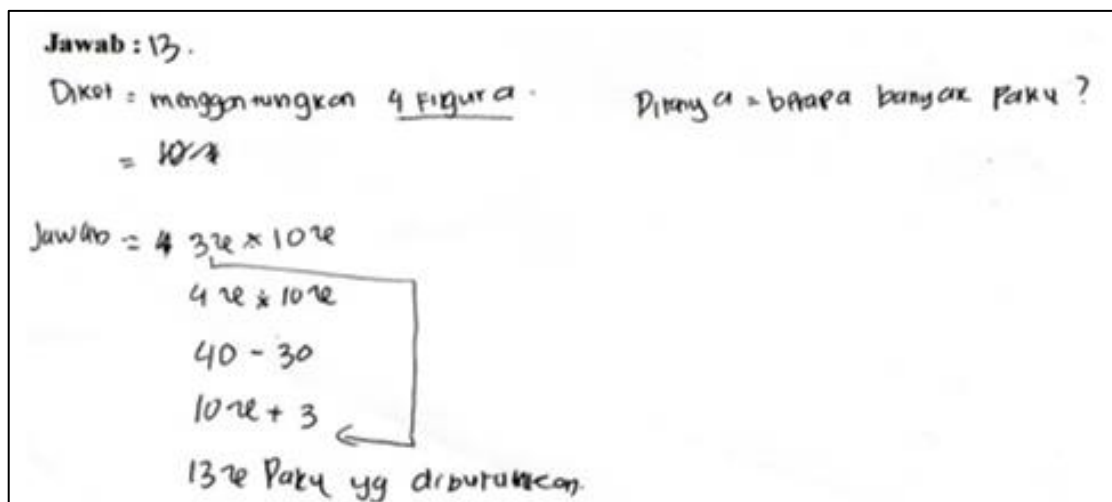 Jawab : 13.
Diket = menggantungkan 4 Figura. Ditanya = berapa banyak paku?
=
Jawab = 4 3x × 10x
4x × 10x
40 - 30
10x + 3
13x Paku yg dibutuhkan.